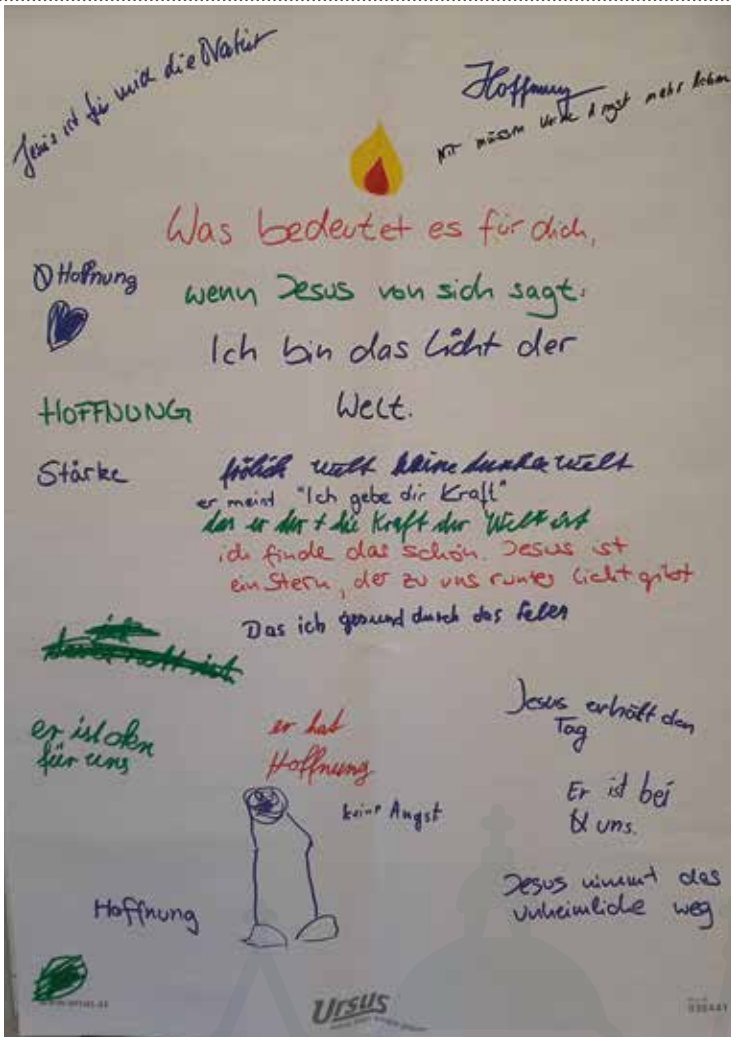 Jesus ist für mich die Natur
Hoffnung
Wir müssen keine Angst mehr haben
Was bedeutet es für dich,
wenn Jesus von sich sagt:
Ich bin das Licht der
Welt.
Hoffnung
HOFFNUNG
Stärke
frölich welt keine dunkle welt
er meint "Ich gebe dir Kraft"
das er der + die Kraft der Welt ist
ich finde das schön. Jesus ist
ein Stern, der zu uns runter Licht gibt
Das ich gesund durch das Leben
er ist
für uns
er hat
Hoffnung
keine Angst
Jesus erhält den
Tag
Er ist bei
uns.
Jesus nimmt das
unheimliche weg
Hoffnung
Ursus